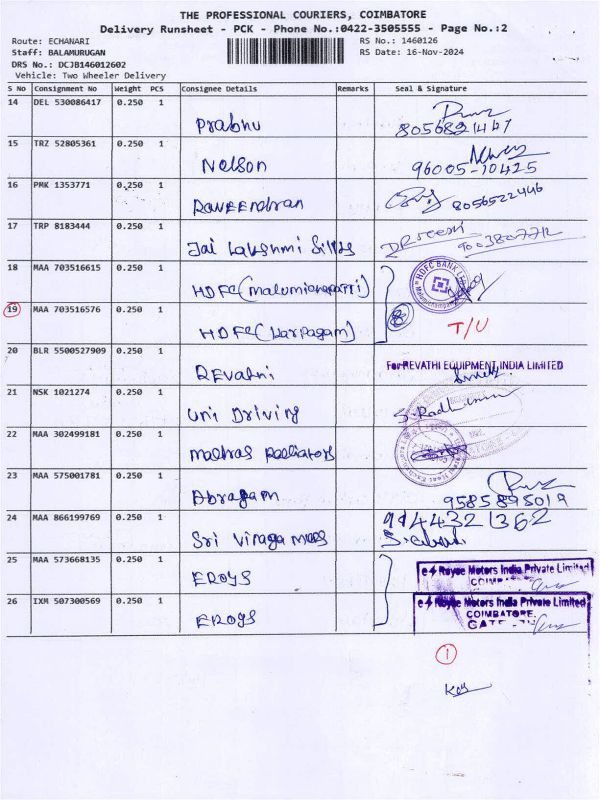 THE PROFESSIONAL COURIERS, COIMBATORE
Delivery Runsheet - PCK - Phone No.:0422-3505555 - Page No.:2
Route: ECHANARI RS No.: 1460126
Staff: BALAMURUGAN RS Date: 16-Nov-2024
DRS No.: DCJB146012602
Vehicle: Two Wheeler Delivery
S No Consignment No Weight PCS Consignee Details Remarks Seal & Signature
14 DEL 530086417 0.250 1 Prabhu
15 TRZ 52805361 0.250 1 Nelson 96005-10425
16 PMK 1353771 0.250 1 Raveendran 8056522446
17 TRP 8183444 0.250 1 Jai Lakshmi Silks 9003807712
18 MAA 703516615 0.250 1 HDFC HDFC BANK
19 MAA 703516576 0.250 1 HDFC (Karpagam) T/U
20 BLR 5500527909 0.250 1 Revathi For REVATHI EQUIPMENT INDIA LIMITED
21 NSK 1021274 0.250 1 Uni Driving S. Radha
22 MAA 302499181 0.250 1 Madras Radiators
23 MAA 575001781 0.250 1 Abragam 9585895019
24 MAA 866199769 0.250 1 Sri
25 MAA 573668135 0.250 1 ERoys e Royce Motors India Private Limited
26 IXM 507300569 0.250 1 ERoys e Royce Motors India Private Limited
COIMBATORE.
1